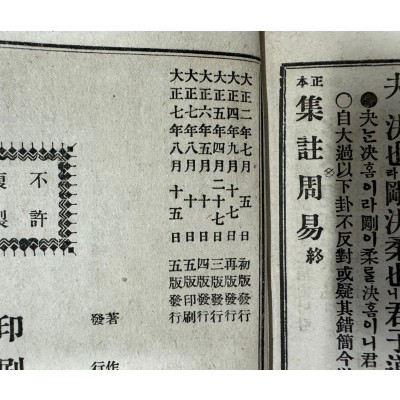 夬 決也라 剛決柔也니 君子道
●夬는決홈이라剛이柔를決홈이니君
○自大過以下卦不反對或疑其錯簡今
正本 集註周易 終
大正二年七月 五日 初版發行
大正四年九月十七日 再版發行
大正五年四月二十七日 三版發行
大正六年五月 日 四版發行
大正七年八月 日 五版印刷
大正七年八月十五日 五版發行
不許
複製
著作
發行
印刷